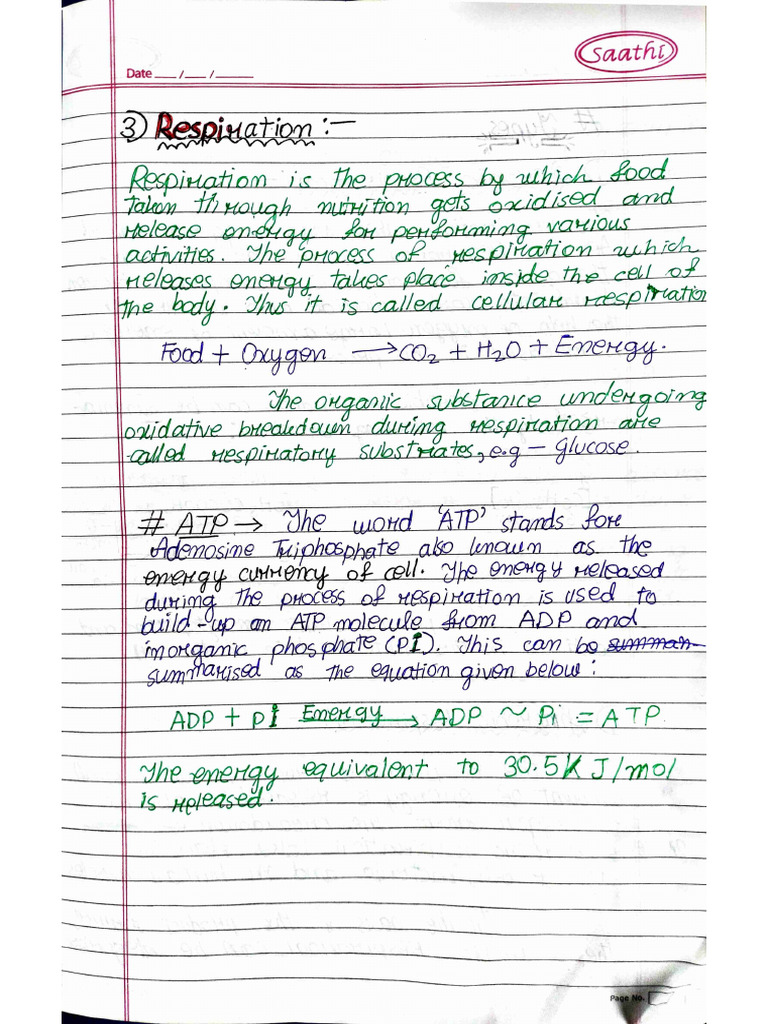 Saathi
Date ___/___/_____
3) Respiration :-
Respiration is the process by which food
taken through nutrition gets oxidised and
release energy for performing various
activities. The process of respiration which
releases energy takes place inside the cell of
the body. Thus it is called cellular respiration
Food + Oxygen → CO2 + H2O + Energy.
The organic substance undergoing
oxidative breakdown during respiration are
called respiratory substrates, e.g - Glucose.
# ATP → The word 'ATP' stands for
Adenosine Triphosphate also known as the
energy currency of cell. The energy released
during the process of respiration is used to
build-up an ATP molecule from ADP and
inorganic phosphate (Pi). This can be summari
summarised as the equation given below :
ADP + Pi Energy → ADP ~ Pi = ATP
The energy equivalent to 30.5 KJ/mol
is released.
Page No.